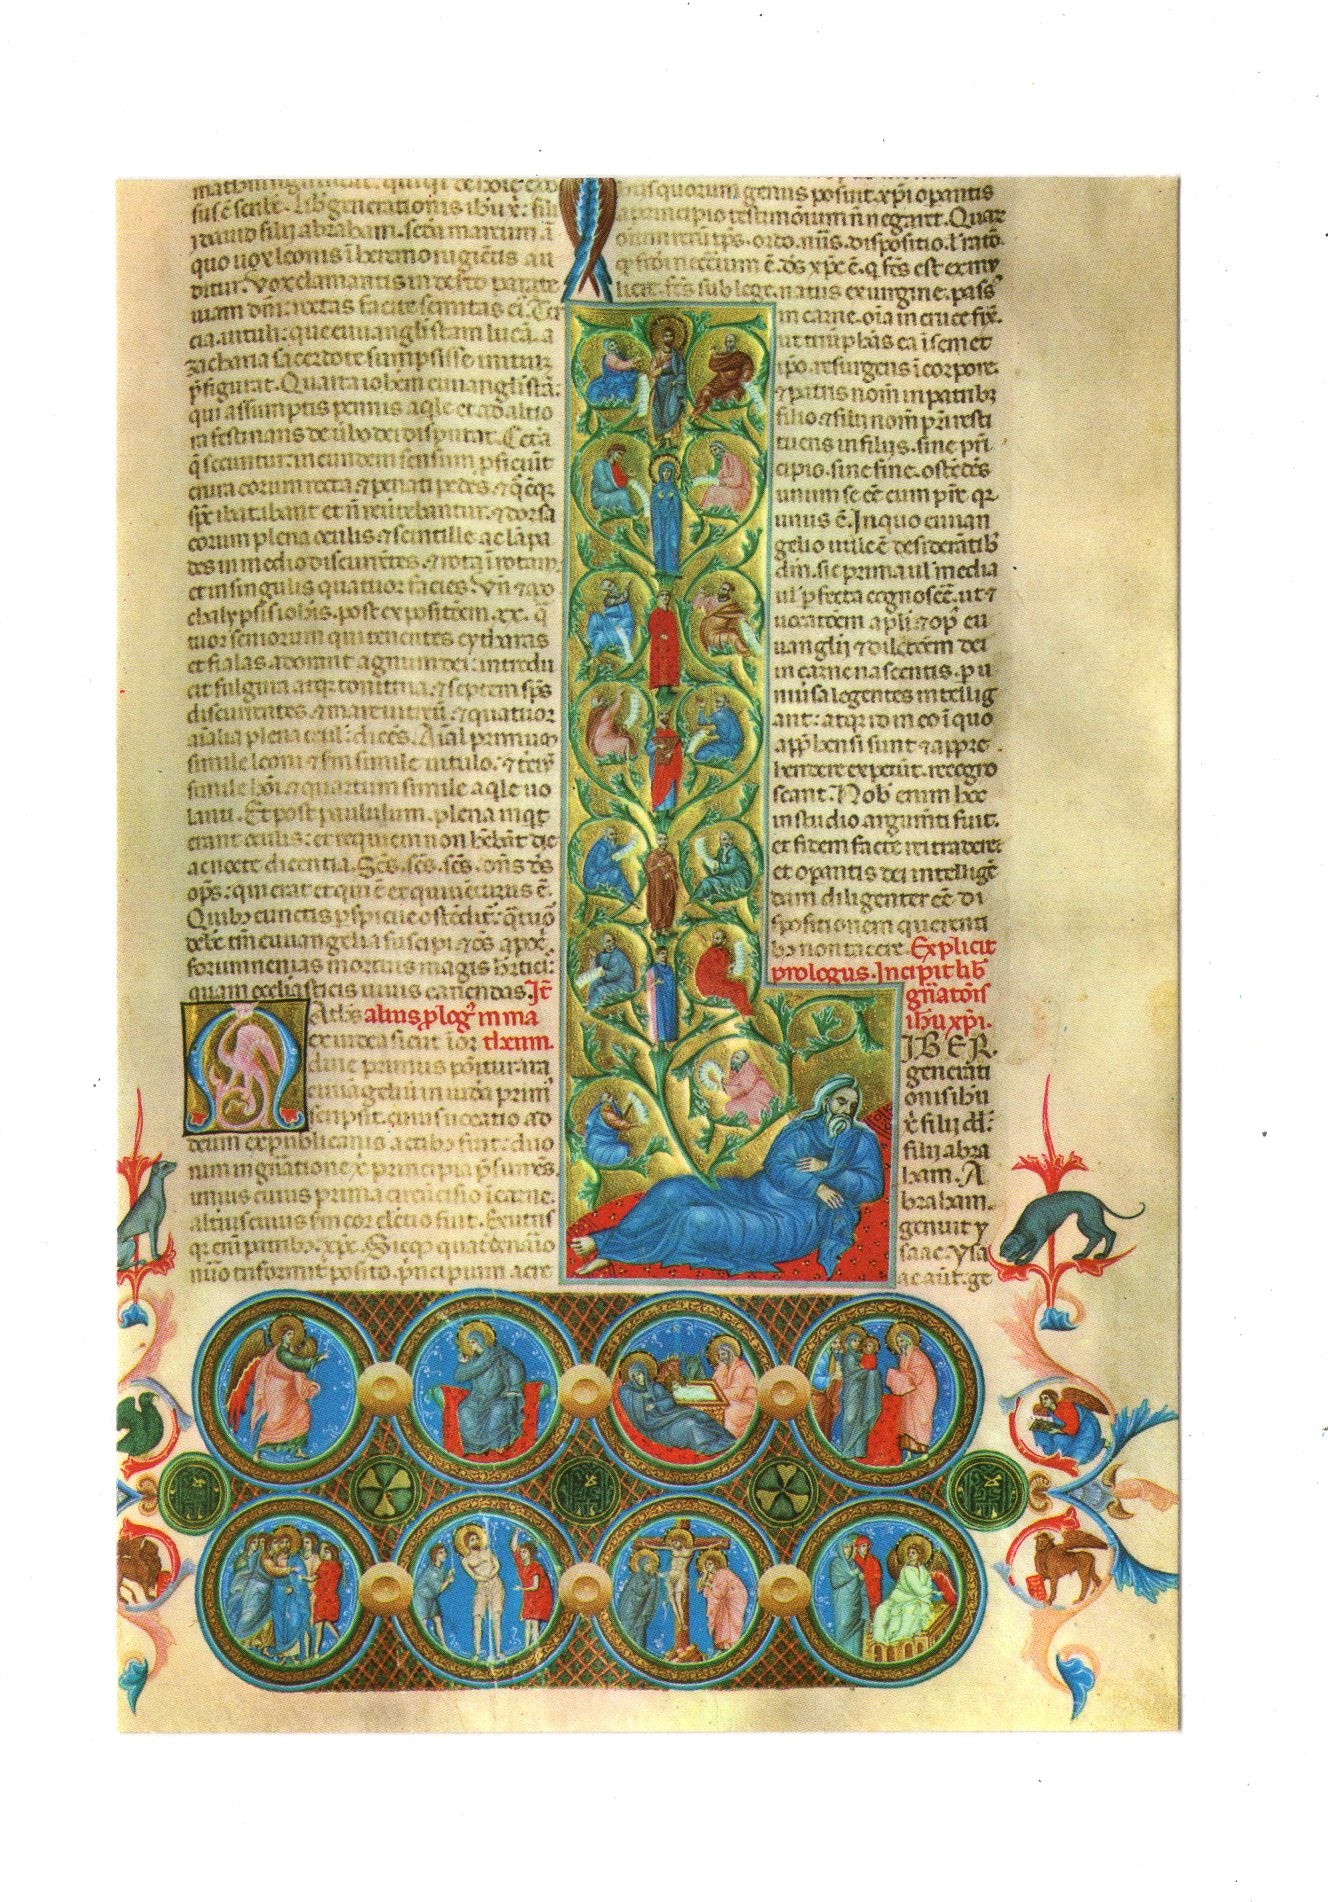 sus ē scribē. Lib generationis ihu xp̄i. filii
dauid filij abrahā. Secd̄a marcum ī
quo uox leonis ī heremo rugiētis au
ditur. Vox clamantis in deserto parate
uiam dn̄i. rectas facite semitas eī. Ter
cia. uituli. que euuangelistam lucā. a
zacharia sacerdote sumpsisse initium
p̄figurat. Quarta ioh̄em euuangelistā.
qui assumptis pennis aq̄le et ad altio
ra festinans de ūbo dei disputat. Cetera
q̄ secuntur. in eundem sensum p̄ficiūt
crura eorum recta. ⁊ pēnati pedes. ⁊ q̄cūqȝ
sp̄c ibat ibant et n̄ reūtebantur. ⁊ dorsa
eorum plena oculis. ⁊ scintille ac lāpa
des in medio discurrētes. ⁊ rota ī rotam
et in singulis quatuor facies. Vn̄ ⁊ apo
chalypsis ioh̄is. post expositōem. xx.
tuor seniorum qui tenentes cytharas
et fialas. adorant agnum dei. introdu
cit fulgura atqȝ tonitrua. ⁊ septem sp̄s
discurrentes. ⁊ quatuor
aīalia plena ocul. dicēs. Aīal primuȝ
simile leoni ⁊ scd̄m simile uitulo. ⁊ terciū
simile hōi. ⁊ quartum simile aq̄le uo
lanti. Et post paululum. plena inqt
erant oculis. et requiem non hēbāt die
ac nocte dicentia. Sc̄s. sc̄s. sc̄s. dn̄s d̄s
op̄s. qui erat et qui ē et qui uēturus ē.
Quibȝ cunctis p̄spicue ostēditr. q̄tuor
debē tm̄ euuangelia suscipi. ⁊ oēs apoc̄
forum nenias mortuis magis h̄ticis
quam ecclīasticis uiuis canendas. It̄
alius plog̓ in ma
theum.
Atheus
ex iudea sicut ī or
dine primus ponitur. ita
euuāgelium in iudea prim̄
scripsit. cuius uocatio ad
deum ex publicanis actibȝ fuit. duo
rum in gn̄atione xp̄i principia p̄sumēs.
unius cuius prima circūcisio ī carne.
alterius cuius scd̄m cor elctio fuit. Ex utris
qȝ em̄ patribȝ. xp̄c. Sicqȝ quatdenario
nūo triformit̄ posito. p̄ncipium a cre
quorum genus posuit. xp̄i opantis
a principio testimōium n̄ negaret. Quar
oīum rerū ip̄s. ordo. nūs. dispositio. l̄ ratō.
q̄ fidei neccīum ē. d̄s xp̄c ē. q̄ fc̄s est ex my
liere. fc̄s sub lege. natus ex uirgine. pass̄
in carne. oīa in cruce fix̄.
ut triūphās ea ī semet
ip̄o. resurgens ī corpore.
⁊ patris nom̄ in patribȝ
filio. ⁊ filij nom̄ pri resti
tuens in filijs. sine prī
cipio. sine fine. ostēdēs
unum se ēē cum pr̄e. qȝ
unus ē. In quo euuan
gelio utile ē desiderātibȝ
dm̄. sic prima. ul̄ media
ul̄ p̄fecta cognoscē. ut ⁊
uocatōem apl̄i. ⁊ op̄ eu
uanglij ⁊ dilectōem dei
in carne nascentis. p̄ u
niūsa legentes intellig
ant. atqȝ id in eo ī quo
app̄hensi sunt ⁊ appre
hendere expetūt. recogno
scant. Nob̄ enim hoc
in studio argum̄ti fuit.
et fidem facte rei tradere
et opantis dei intelligē
dam diligenter ēē di
spositionem querenti
bȝ non tacere. Explicit
prologus. Incipit lib̄
gn̄atōis
ihu xp̄i.
IBER
generati
onis ihu
xp̄i filij dd̄.
filij abra
ham. A
braham.
genuit y
saac. Ysa
ac aūt. ge